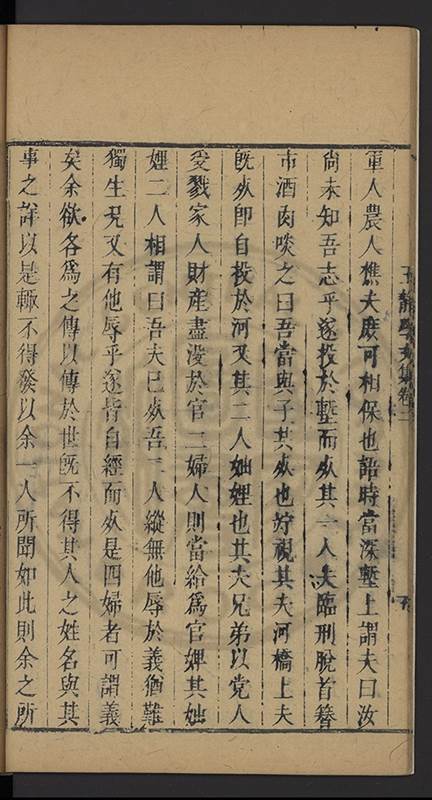 軍人農人樵夫庻可相保也詣時當深塹上謂夫曰汝
尚未知吾志乎遂投於塹而死其一人夫臨刑脫首簪
市酒肉啖之曰吾當與子其死也竚視其夫河橋上夫
旣死即自投於河又其二人妯娌也其夫兄弟以党人
受戮家人財産盡沒於官二婦人則當給爲官婢其妯
娌二人相謂曰吾夫已死吾二人縱無他辱於義猶難
獨生况又有他辱乎遂皆自經而死是四婦者可謂義
矣余欲各爲之傳以傳於世旣不得其人之姓名與其
事之詳以是輙不得發以余一人所聞如此則余之所